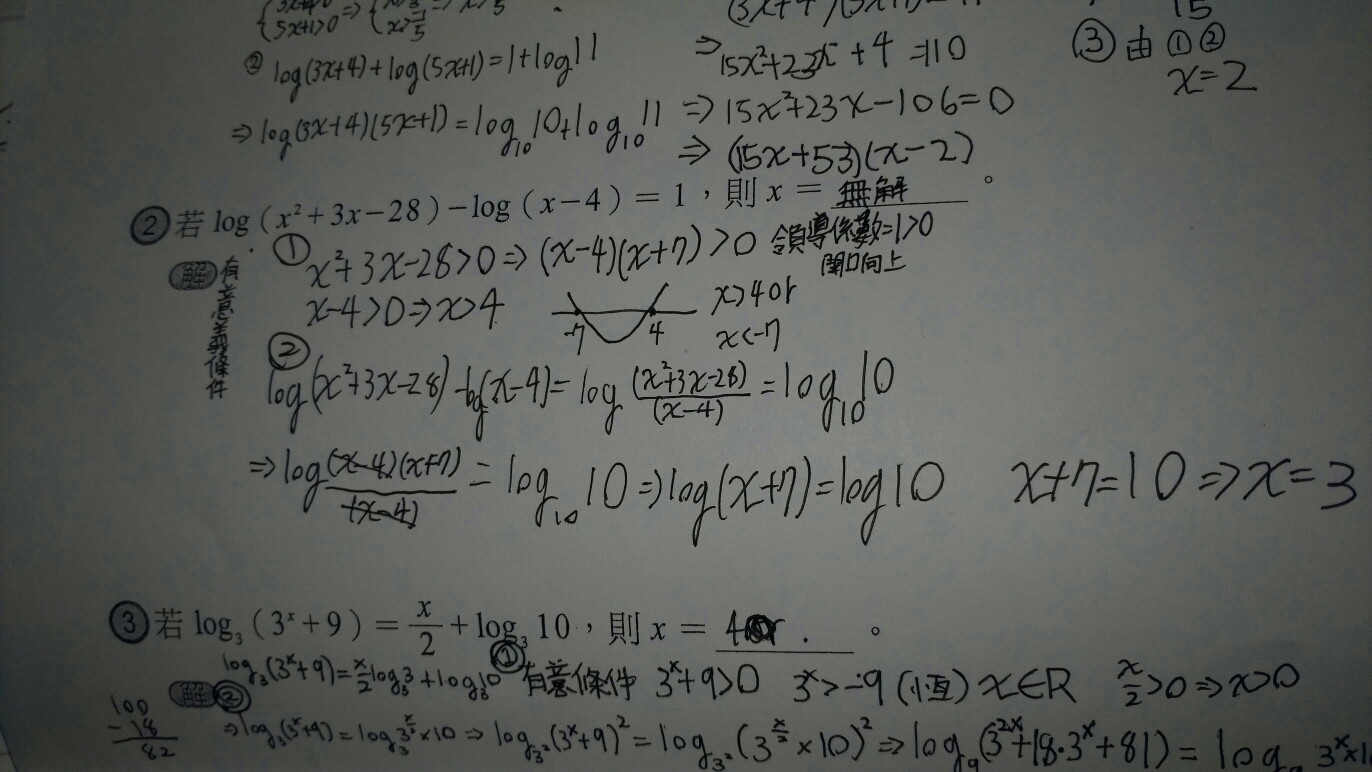 5x+1>0
② log(3x+4)+log(5x+1)=1+log11
⇒log(3x+4)(5x+1)=log₁₀10+log₁₀11
⇒15x²+23x+4=110
⇒15x²+23x-106=0
⇒(15x+53)(x-2)
15
③由①②
x=2
②若 log(x²+3x-28)-log(x-4)=1,則 x= 無解 。
解 有意義條件
① x²+3x-28>0⇒(x-4)(x+7)>0 領導係數=1>0
開口向上
x-4>0⇒x>4
-7 4
x>4 or
x<-7
②
log(x²+3x-28)-log(x-4)=log (x²+3x-28)/(x-4) =log₁₀10
⇒log (x-4)(x+7)/(x-4) =log₁₀10⇒log(x+7)=log10 x+7=10⇒x=3
③若 log₃(3ˣ+9)=x/2+log₃10,則 x= 4 。
解 ① 有意條件 3ˣ+9>0 3ˣ>-9(恆) x∈R x/2>0⇒x>0
② log₃(3ˣ+9)=x/2 log₃3+log₃10
⇒log₃(3ˣ+9)=log₃3^(x/2)×10⇒log₃²(3ˣ+9)²=log₃²(3^(x/2)×10)²⇒log₉(3²ˣ+18·3ˣ+81)=log₉ 3ˣ×1
100
-18
82